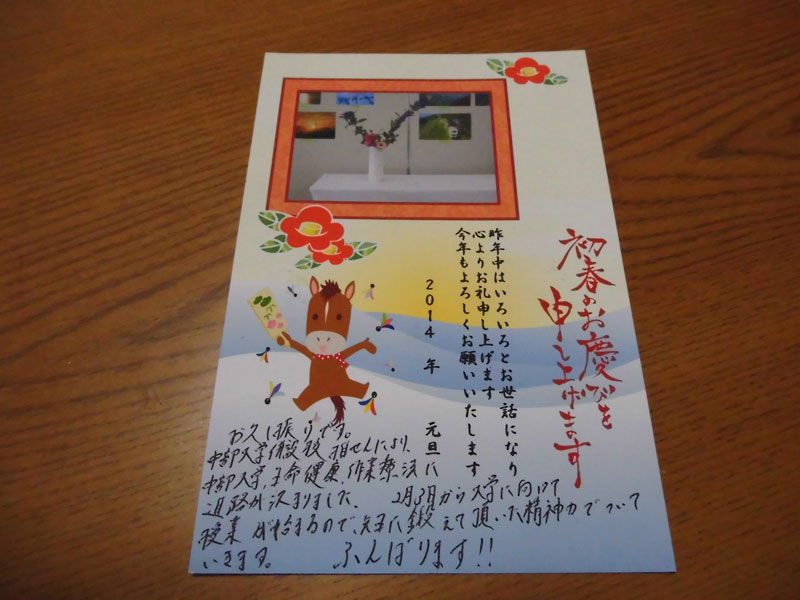 初春のお慶びを
申し上げます
昨年中はいろいろとお世話になり
心よりお礼申し上げます
今年もよろしくお願いいたします
2014年 元旦
お久し振りです。
中部大学併設校推せんにより、
中部大学 生命健康 作業療法に
進路が決まりました。 2月3日から大学に向けて
授業が始まるので、先生に鍛えて頂いた精神力でついて
いきます。 ふんばります!!